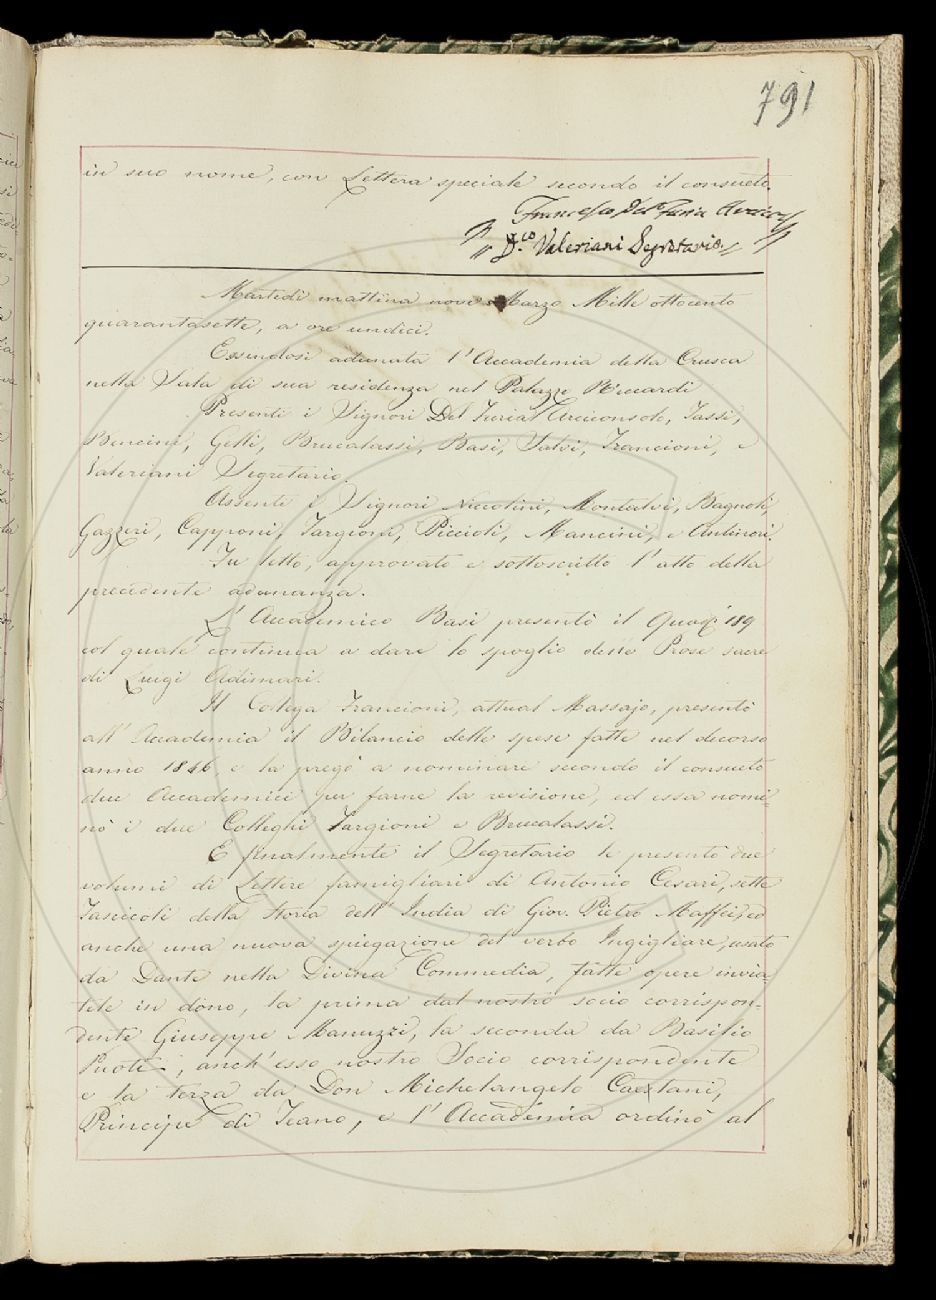 791
in suo nome, con Lettera speciale secondo il consueto.
Francesco Del Furia Arcico
D.co Valeriani Segretario
Martedì mattina nove Marzo Mille ottocento
quarantasette, a ore undici.
Essendosi adunata l'Accademia della Crusca
nella Sala di sua residenza nel Palazzo Riccardi
Presenti i Signori Del Furia Arciconsolo, Tassi,
Bencini, Gelli, Brucalassi, Basi, Salvi, Francioni, e
Valeriani Segretario.
Assenti i Signori Niccolini, Montalvi, Bagnoli,
Gazzeri, Capponi, Targioni, Piccioli, Mancini, e Antinori.
Fu letto, approvato e sottoscritto l'atto della
precedente adunanza.
L'Accademico Basi presentò il Quad. 189
col quale continua a dare lo spoglio delle Prose sacre
di Luigi Adimari.
Il Collega Francioni, attual Massajo, presentò
all'Accademia il Bilancio delle spese fatte nel decorso
anno 1846 e la pregò a nominare secondo il consueto
due Accademici per farne la revisione, ed essa nomi-
nò i due Colleghi Targioni e Brucalassi.
E finalmente il Segretario le presentò due
volumi di Lettere famigliari di Antonio Cesari, sette
Fascicoli della Storia dell'India di Giov. Pietro Maffei, ed
anche una nuova spiegazione del verbo Ingigliare, usato
da Dante nella Divina Commedia, fatte opere invia-
tele in dono, la prima dal nostro socio corrispon-
dente Giuseppe Manuzzi, la seconda da Basilio
Puoti, anch'esso nostro Socio corrispondente
e la terza da Don Michelangelo Caetani,
Principe di Teano, e l'Accademia ordinò al